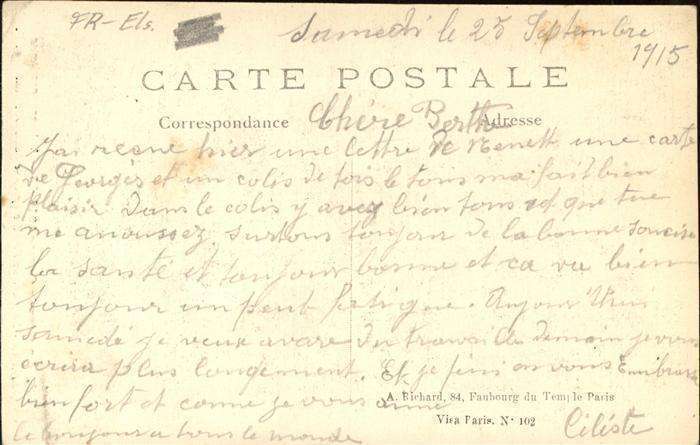 FR-Els.
Samedi le 25 Septembre
1915
CARTE POSTALE
Correspondance
Adresse
Chère Berthe
J'ai recue hier une lettre de une carte
de Georges et un colis de tois le tous ma fait bien
plaisir. Dans le colis y avez bien tous que tue
me surtous toujour de la bonne
la santé et toujour bonne et ca va bien
toujour un peut fatigue.
samedé je veux avare du demain je vous
écrira plus longement. Et je fini an vous Embrase
bien fort et come je vous aime
le bonjour a tous le monde
Céliste
A. Richard, 84, Faubourg du Temple Paris
Visa Paris, N° 102